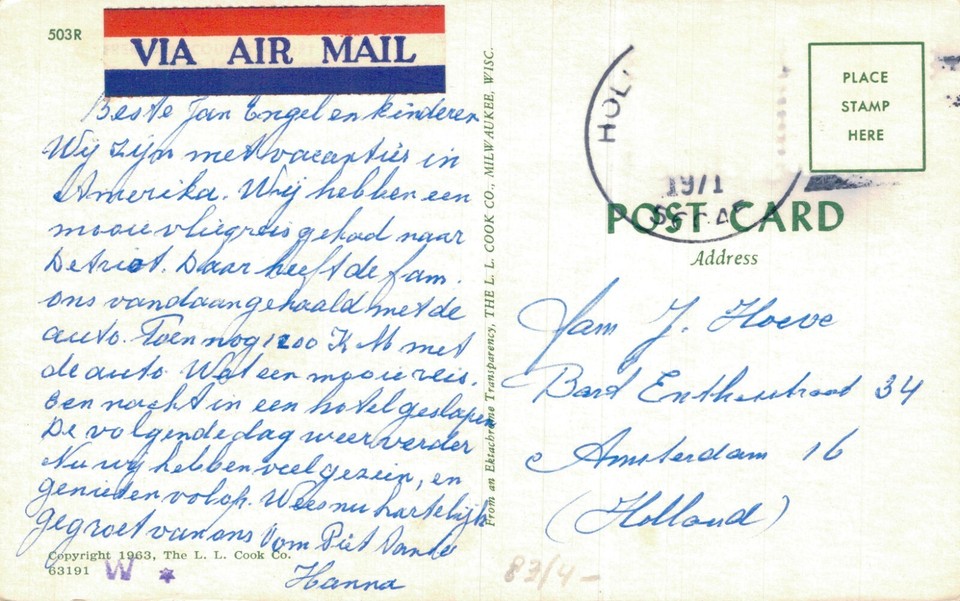 503R
VIA AIR MAIL
Beste Jan Engel en kinderen
Wij zijn met vacanties in
Amerika. Wij hebben een
mooie vliegreis gehad naar
Detriot. Daar heeft de fam.
ons vandaan gehaald met de
auto. Toen nog 1200 K M met
de auto. Wat een mooie reis.
een nacht in een hotel geslapen
De volgende dag weer verder
Nu wij hebben veel gezien, en
genieten volop. Wees nu hartelijk
gegroet van ons Oom Piet Tante
Hanna
Copyright 1963, The L. L. Cook Co.
63191
W
From an Ektachrome Transparency, THE L. L. COOK CO., MILWAUKEE, WISC.
HOL
1971
PLACE
STAMP
HERE
POST CARD
Address
Fam J. Hoeve
34
Amsterdam 16
(Holland)
83/4-